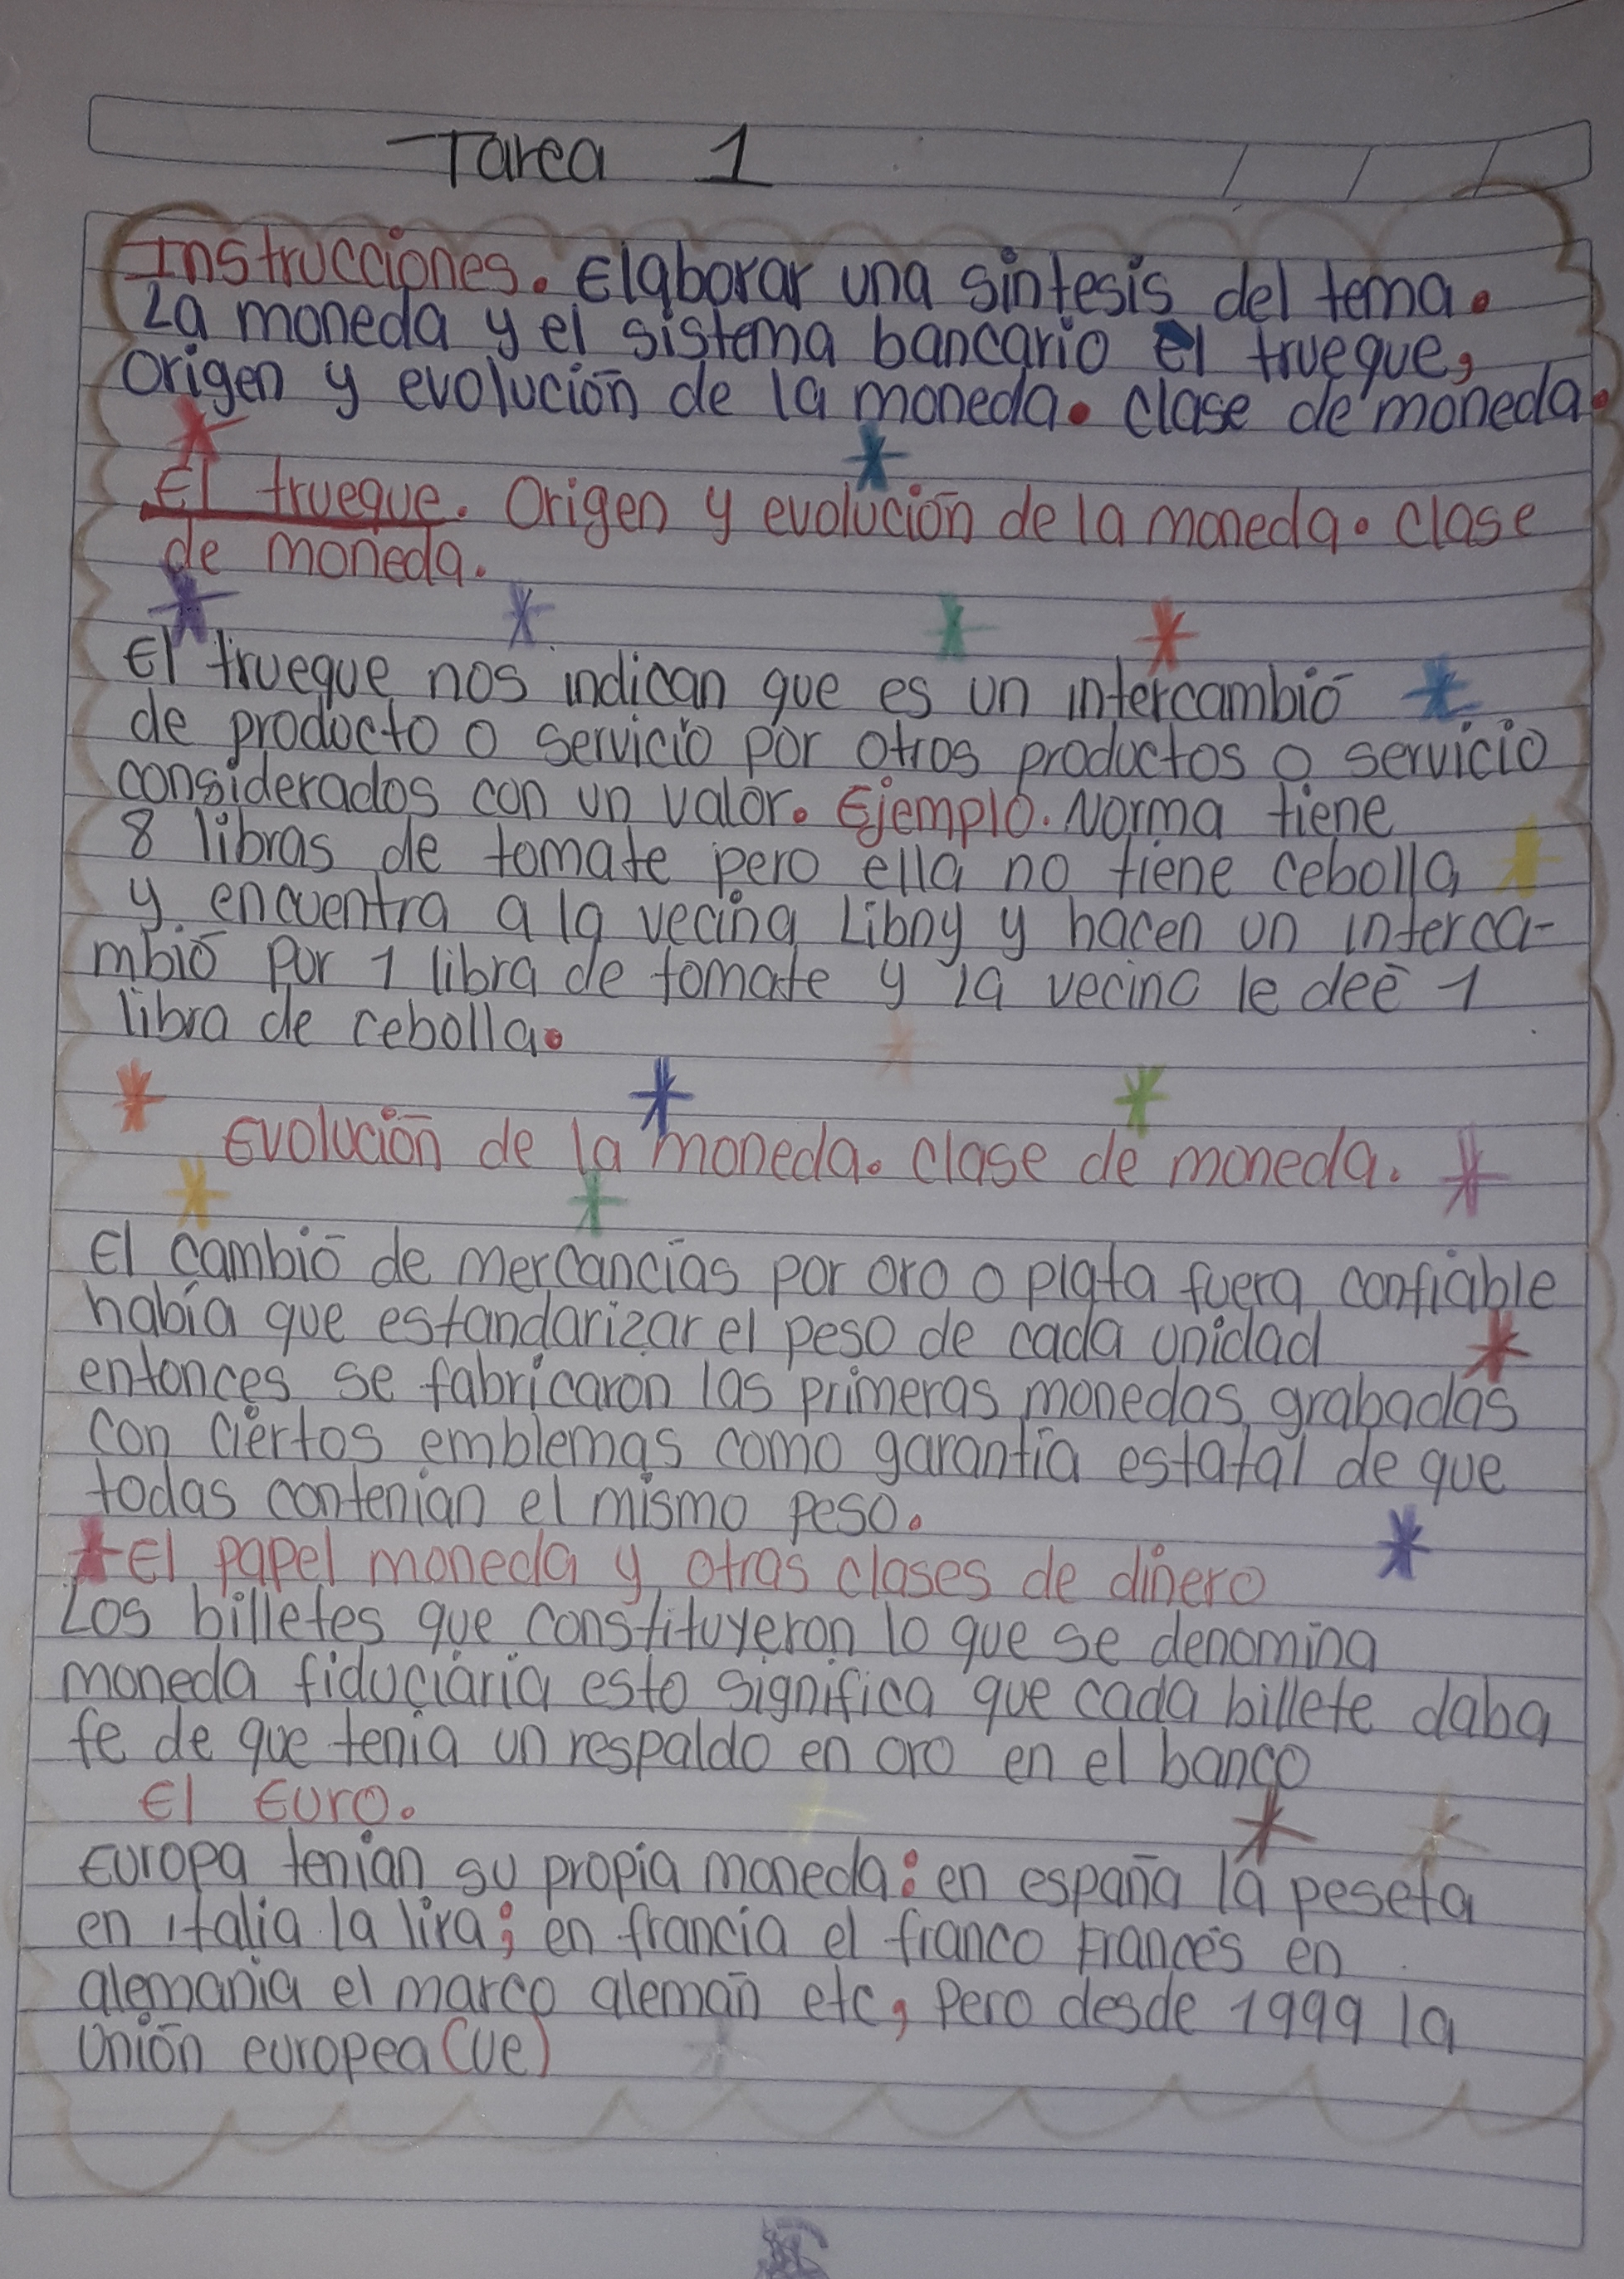 Tarea 1
Instrucciones. Elaborar una sintesis del tema.
La moneda y el sistema bancario el trueque,
Origen y evolución de la moneda. clase de moneda.
El trueque. Origen y evolución de la moneda. clase
de moneda.
El trueque nos indican que es un intercambió
de producto o servicio por otros productos o servicio
considerados con un valor. Ejemplo. Norma tiene
8 libras de tomate pero ella no tiene cebolla
y encuentra a la vecina Libny y hacen un interca-
mbió por 1 libra de tomate y la vecina le deé 1
libra de cebolla.
Evolución de la moneda. clase de moneda.
El cambió de mercancías por oro o plata fuera confiable
había que estandarizar el peso de cada unidad
entonces se fabricaron las primeras monedas grabadas
con ciertos emblemas como garantía estatal de que
todas contenian el mismo peso.
El papel moneda y otras clases de dinero
Los billetes que constituyeron lo que se denomina
moneda fiduciaria esto significa que cada billete daba
fe de que tenia un respaldo en oro en el banco
El Euro.
Europa tenian su propia moneda: en españa la peseta
en italia la lira; en francia el franco Francés en
alemania el marco alemán etc, pero desde 1999 la
Unión europea (ue)